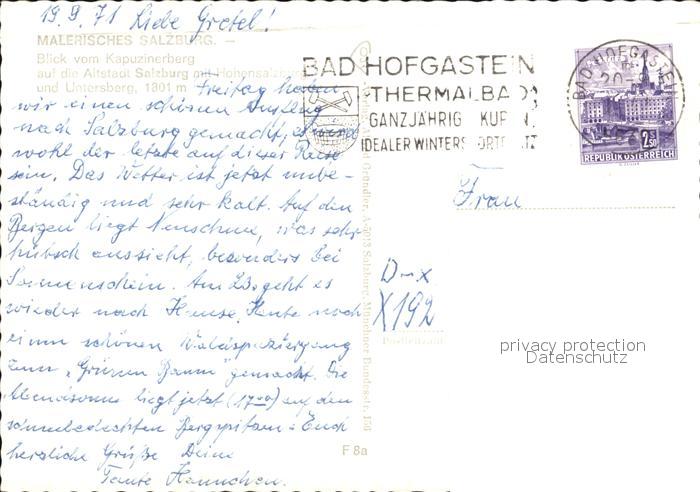 19.9.71 Liebe Gretel!
MALERISCHES SALZBURG. —
Blick vom Kapuzinerberg
auf die Altstadt Salzburg mit Hohensalzburg
und Untersberg, 1801 m
Freitag haben
wir einen schönen Ausflug
nach Salzburg gemacht, es wird
wohl der letzte auf dieser Reise
sein. Das Wetter ist jetzt unbe-
ständig und sehr kalt. Auf den
Bergen liegt Neuschnee, was sehr
hübsch aussieht, besonders bei
Sonnenschein. Am 23. geht es
wieder nach Hause. Heute noch
einen schönen Waldspaziergang
zum „Grünen Baum" gemacht. Die
Abendsonne liegt jetzt (17⁰⁰) auf den
schneebedeckten Bergspitzen. Euch
herzliche Grüße Deine
Tante Hannchen.
BAD HOFGASTEIN
THERMALBAD
GANZJÄHRIG KUR
IDEALER WINTERSPORTPLATZ
BAD HOFGASTEIN
20
2.50
REPUBLIK ÖSTERREICH
Frau
X192
Postleitzahl
Gründler, A-5013 Salzburg, Münchner Bundesstr. 156
F 8a
privacy protection
Datenschutz